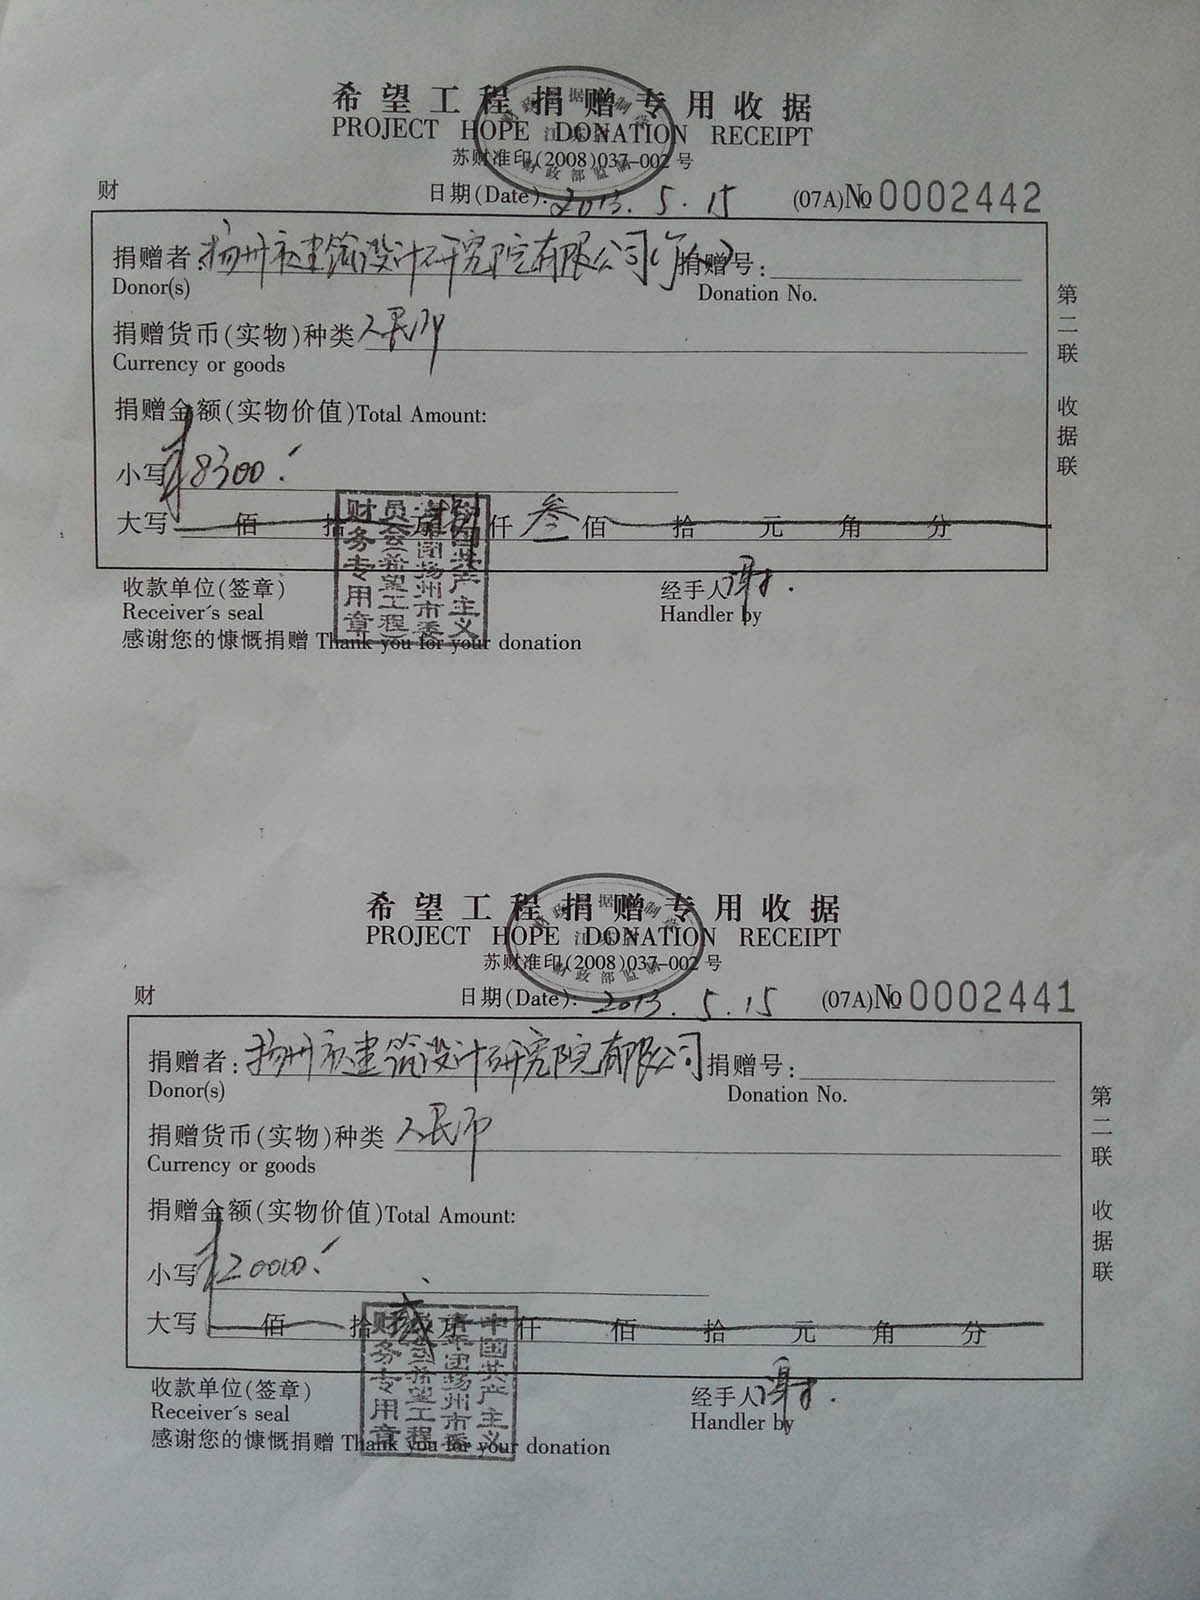 希望工程捐赠专用收据
PROJECT HOPE DONATION RECEIPT
苏财准印(2008)037-002号
财 日期(Date): 2013.5.15 (07A)№0002442
捐赠者: 扬州市建筑设计研究院有限公司 捐赠号:
Donor(s) Donation No.
捐赠货币(实物)种类 人民币
Currency or goods
捐赠金额(实物价值)Total Amount:
小写 ¥8300.
大写 佰 拾 万捌仟叁佰 拾 元 角 分
收款单位(签章) 经手人 谢
Receiver's seal Handler by
感谢您的慷慨捐赠 Thank you for your donation
第二联 收据联
中国共产主义
青年团扬州市委
员会(希望工程)
财务专用章
希望工程捐赠专用收据
PROJECT HOPE DONATION RECEIPT
苏财准印(2008)037-002号
财 日期(Date): 2013.5.15 (07A)№0002441
捐赠者: 扬州市建筑设计研究院有限公司 捐赠号:
Donor(s) Donation No.
捐赠货币(实物)种类 人民币
Currency or goods
捐赠金额(实物价值)Total Amount:
小写 ¥20000.
大写 佰 拾贰万 仟 佰 拾 元 角 分
收款单位(签章) 经手人 谢
Receiver's seal Handler by
感谢您的慷慨捐赠 Thank you for your donation
第二联 收据联
中国共产主义
青年团扬州市委
员会(希望工程)
财务专用章